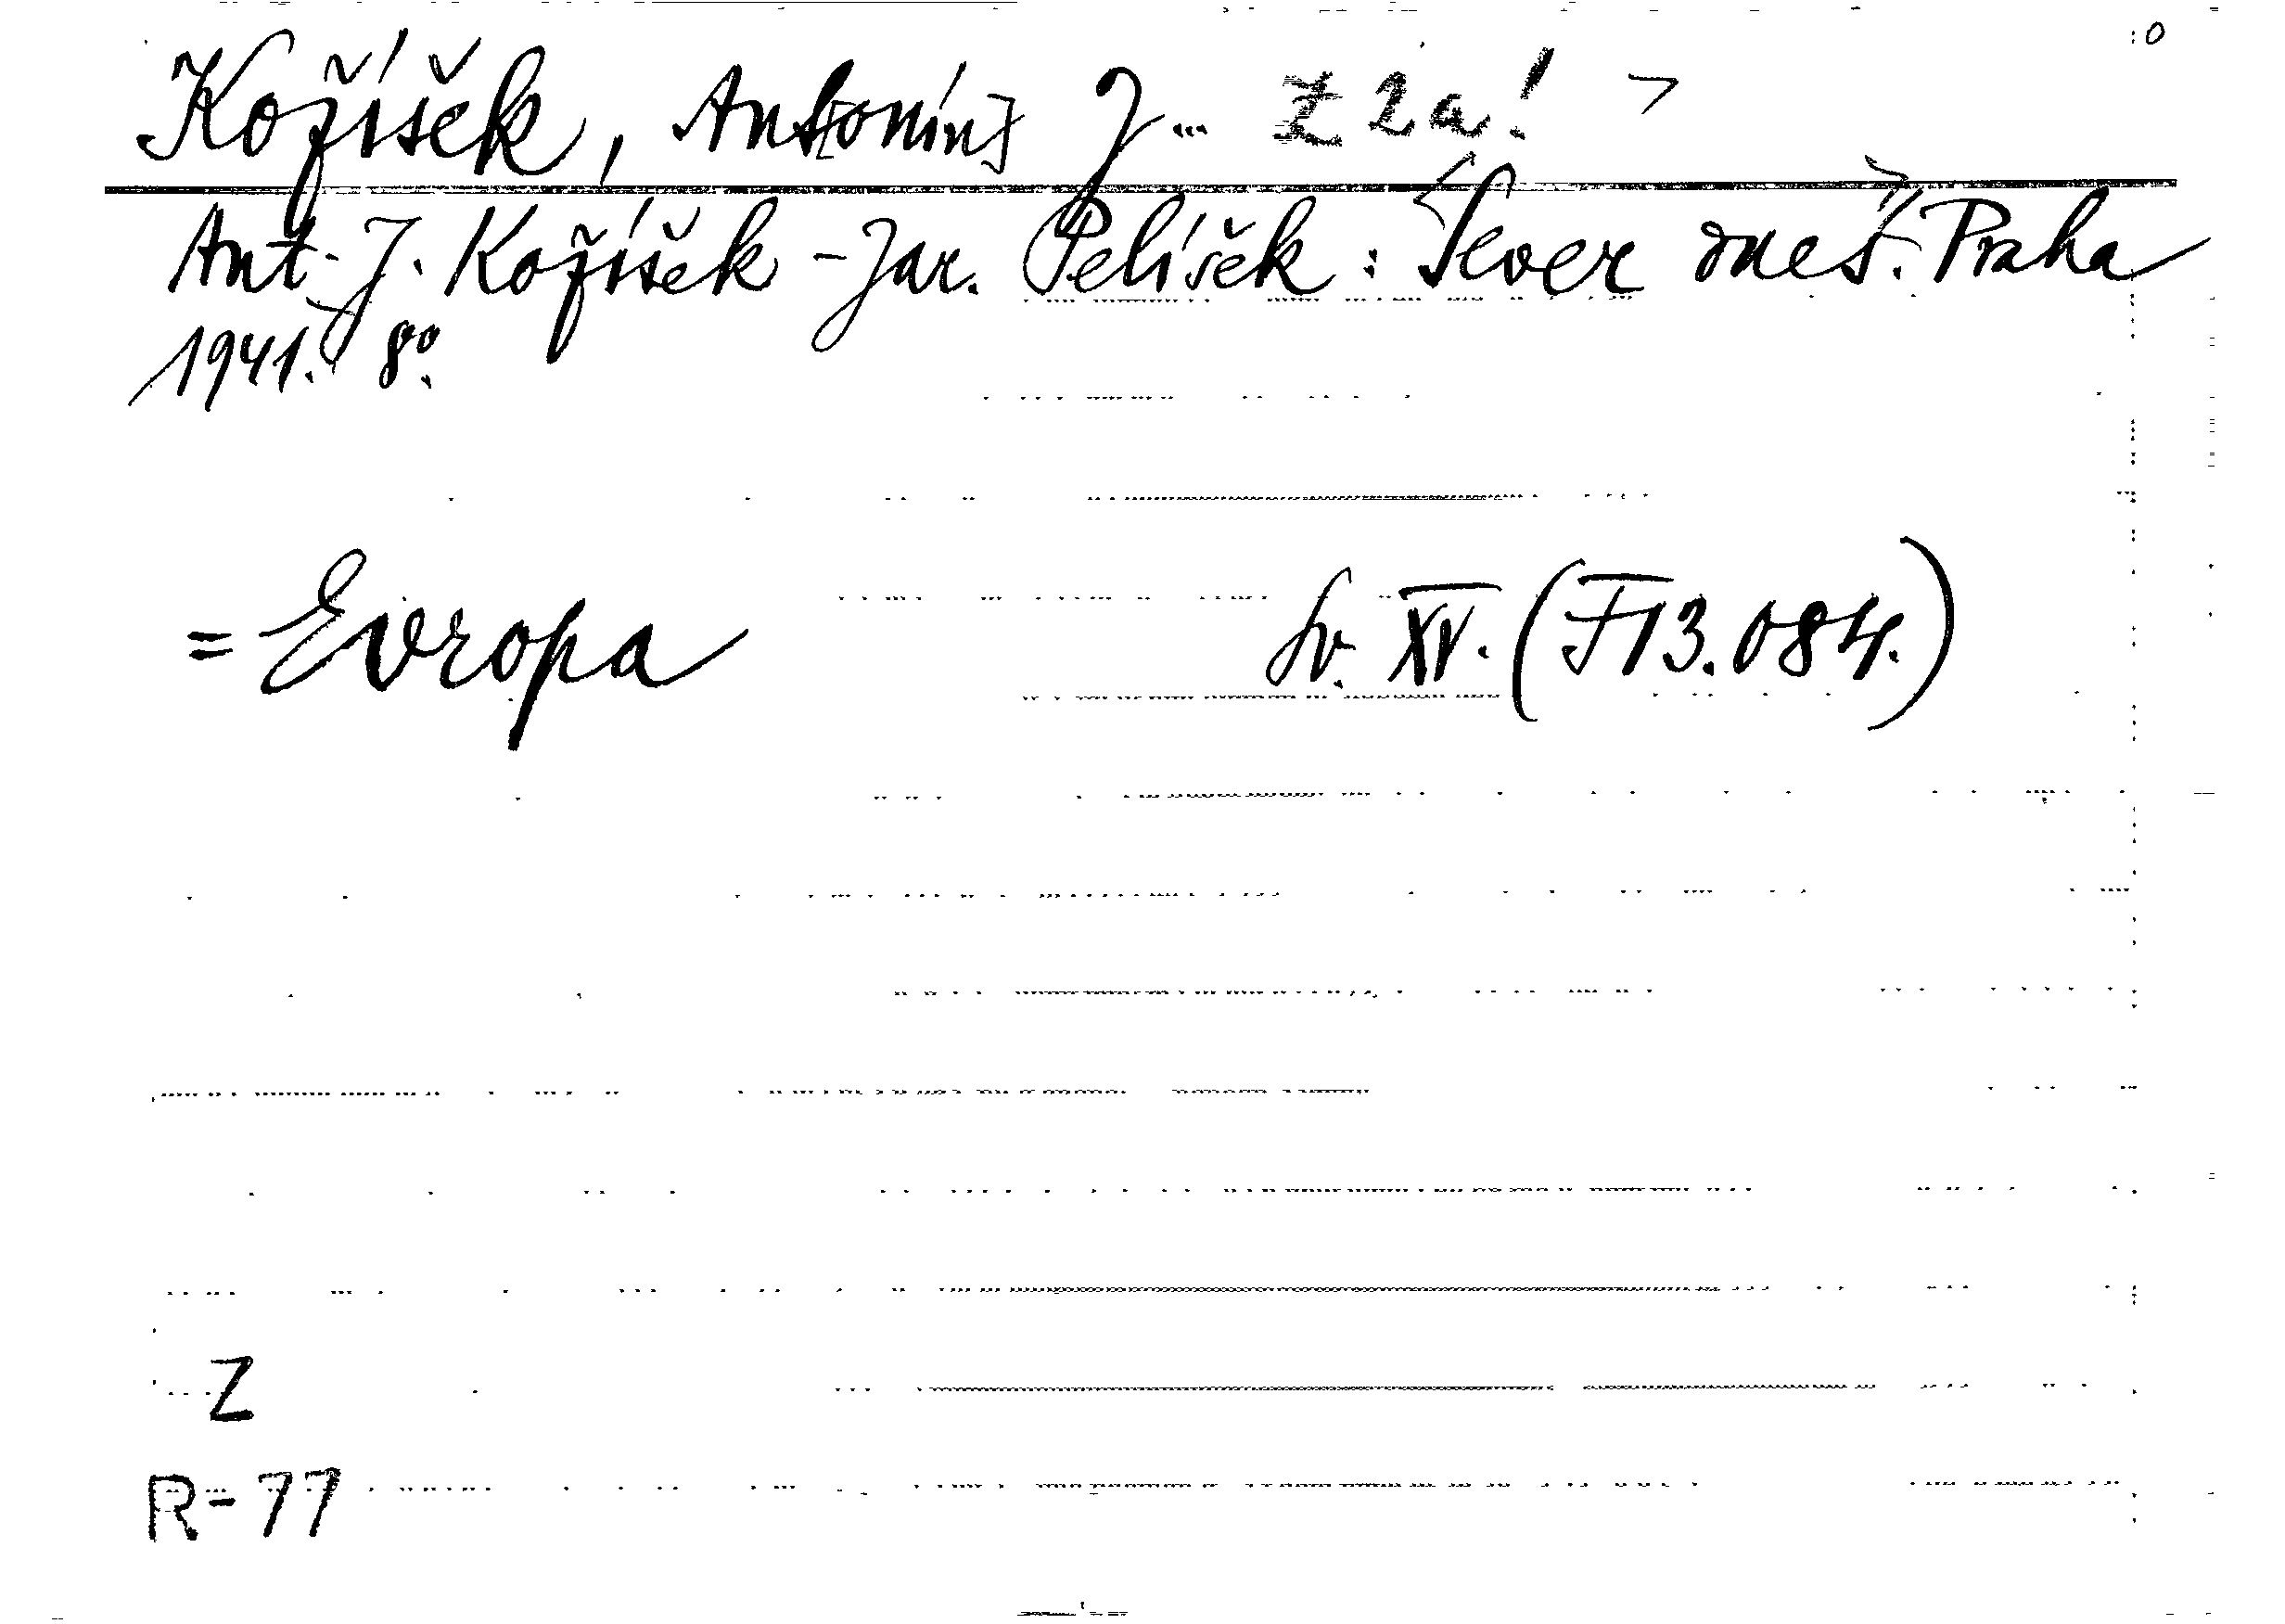 Kožíšek, Ant[onín] J... Z 2a! >
Ant. J. Kožíšek - Jar. Pelíšek: Sever dneš. Praha
1941. 8°.
= Evropa Sv. XV. (F 13.084.)
Z
R-77